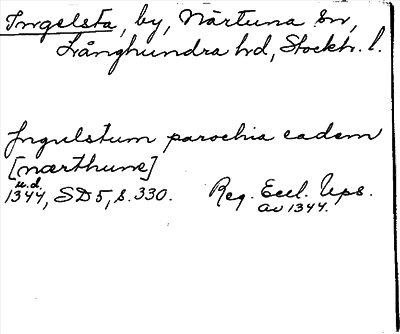 Ingelsta, by, Närtuna sn,
Långhundra hd, Stockh. l.
Ingulstum parochia eadem
[nærthune]
u.d.
1344, SD 5, s. 330. Reg. Eccl. Ups.
av 1344.